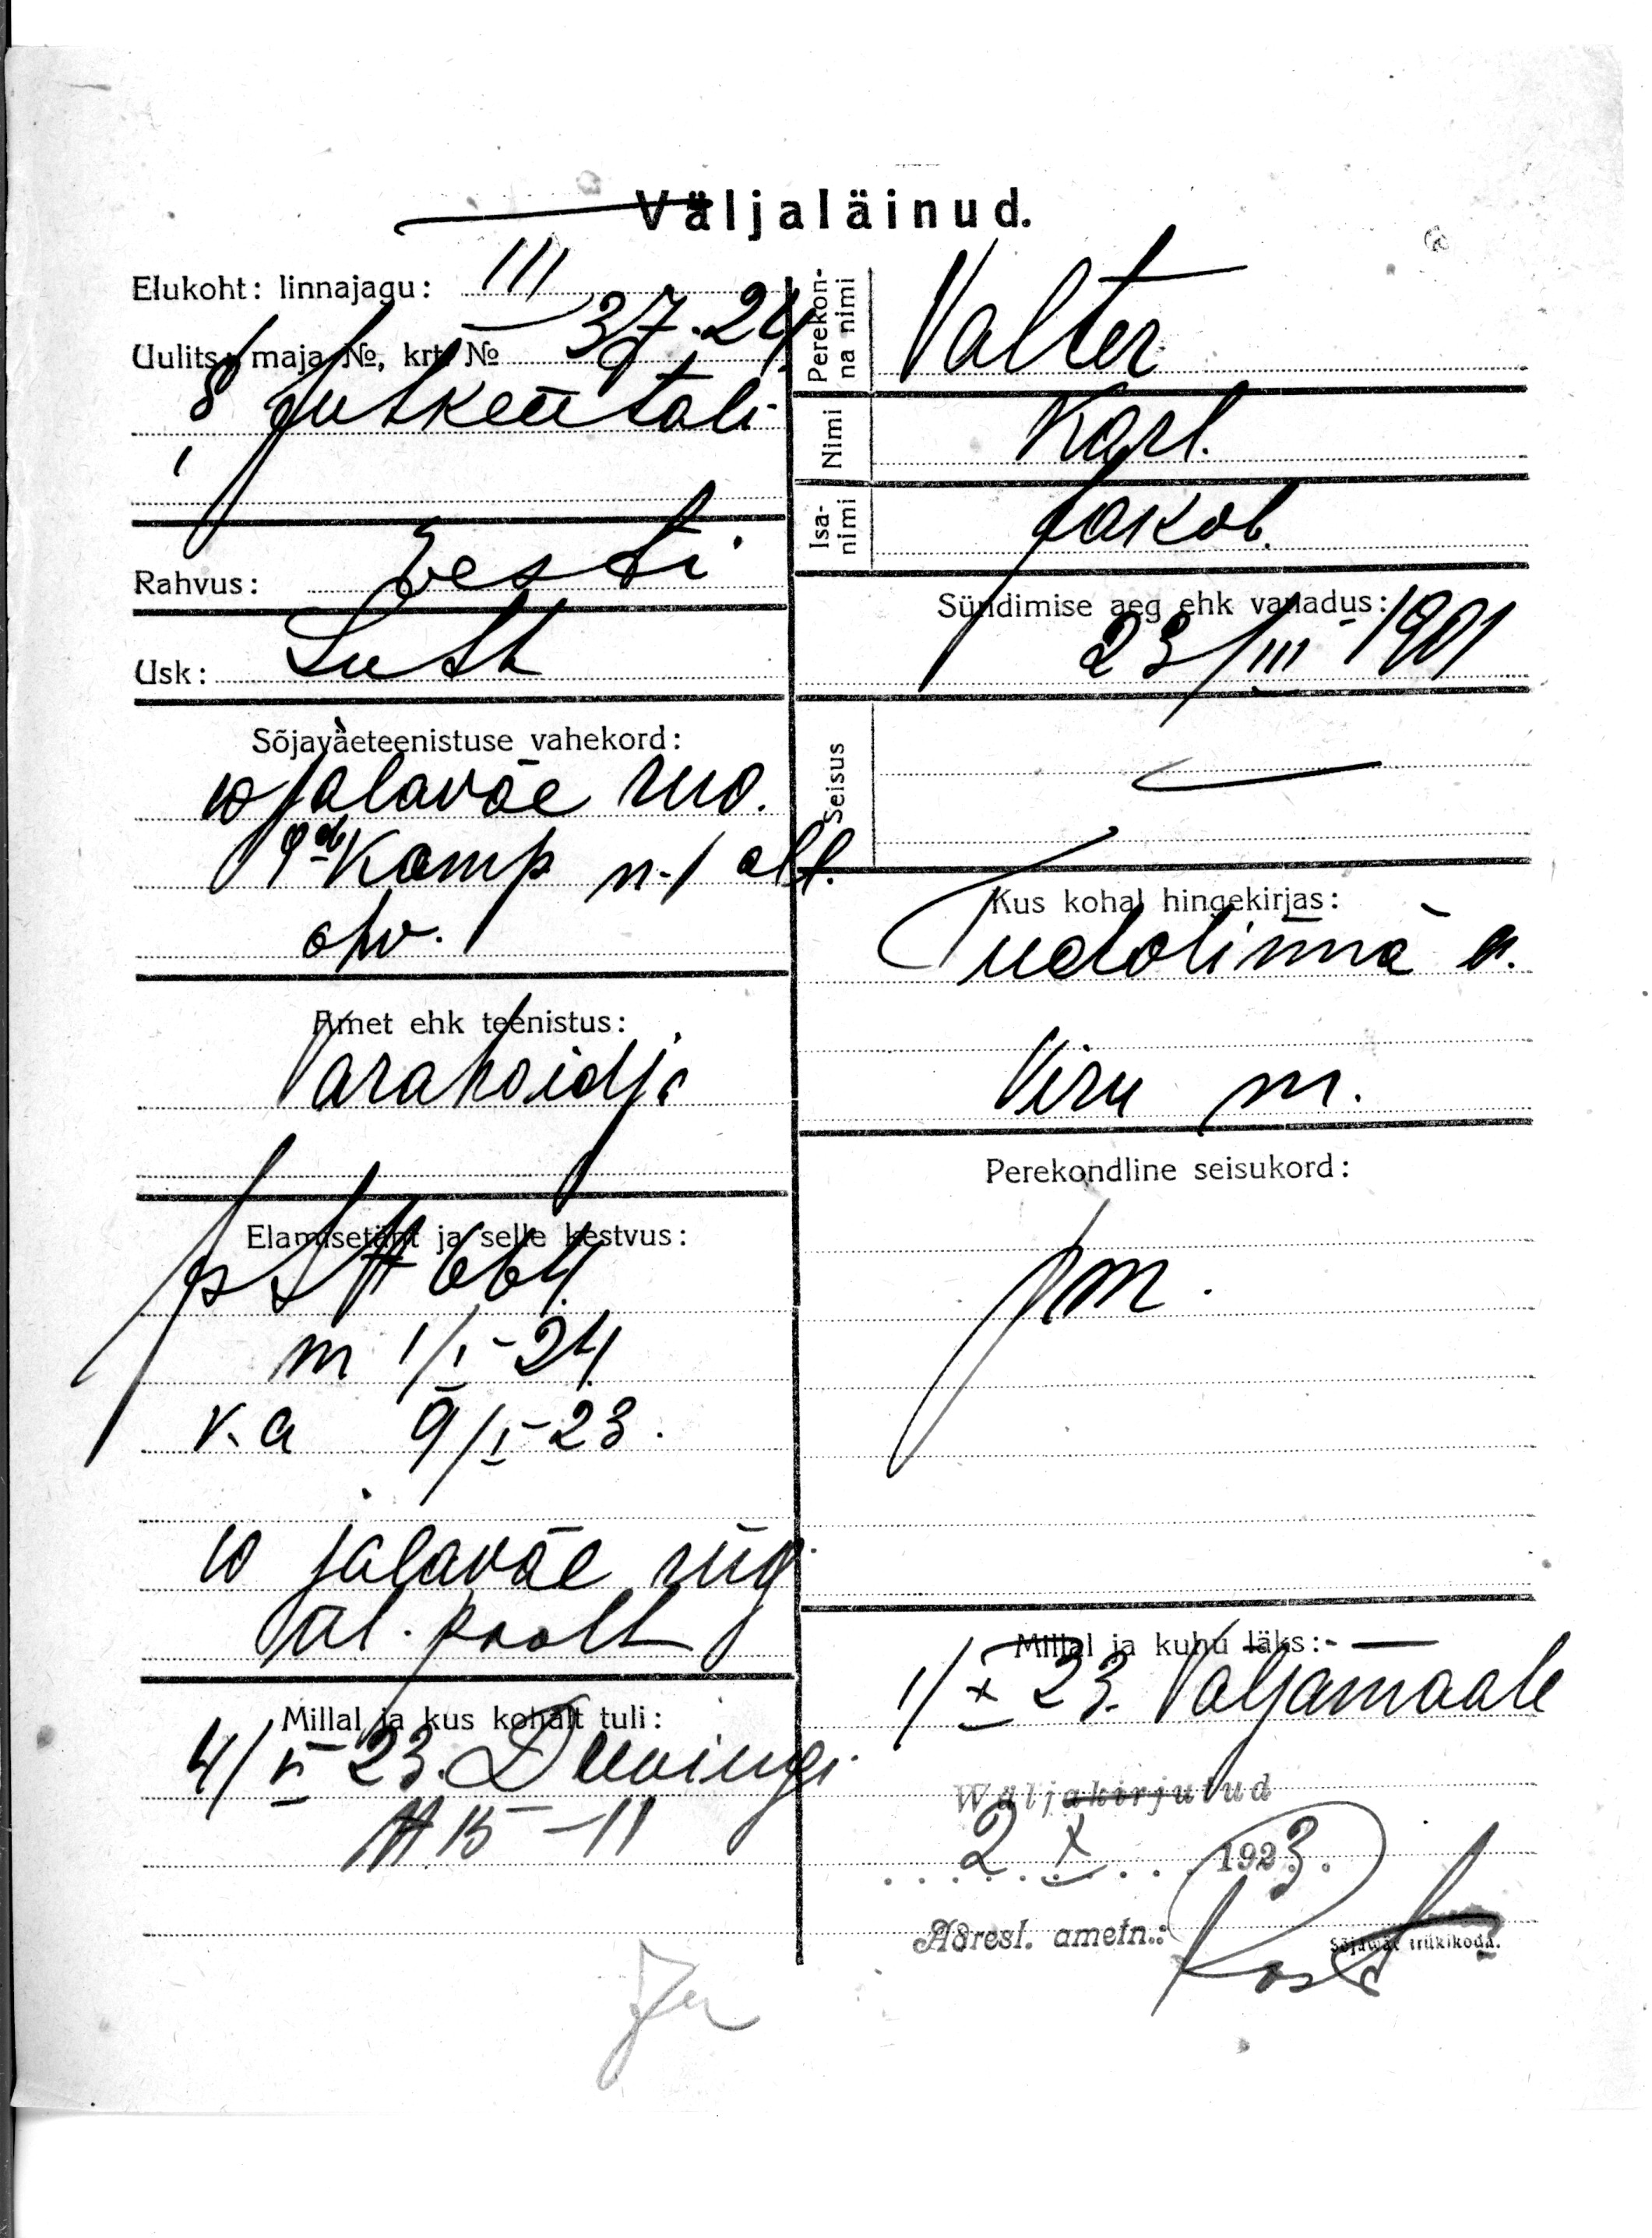 Väljaläinud.
Elukoht: linnajagu: III
Uulits, maja №, krt. № 37-24
Rahvus: Eesti
Usk: Luth
Sõjaväeteenistuse vahekord:
10 jalaväe
Komp n-1 all.
ohv.
Amet ehk teenistus:
Varahoidja
Elamisetäht ja selle kestvus:
№ 664
m 1/I-24
v. a 9/I-23.
10 jalaväe rüg
ül. poolt
Millal ja kus kohalt tuli:
23.
№ 15-11
Perekonna nimi Valter
Nimi Karl.
Isanimi Jakob.
Sündimise aeg ehk vanadus:
23/III-1901
Seisus
Kus kohal hingekirjas:
Tudolinna
Viru m.
Perekondline seisukord:
pm.
Millal ja kuhu läks:
1/X 23. Väljamaale
Wäljakirjutud
2 X 1923.
Adresl. ametn.:
Sõjawäe trükikoda.